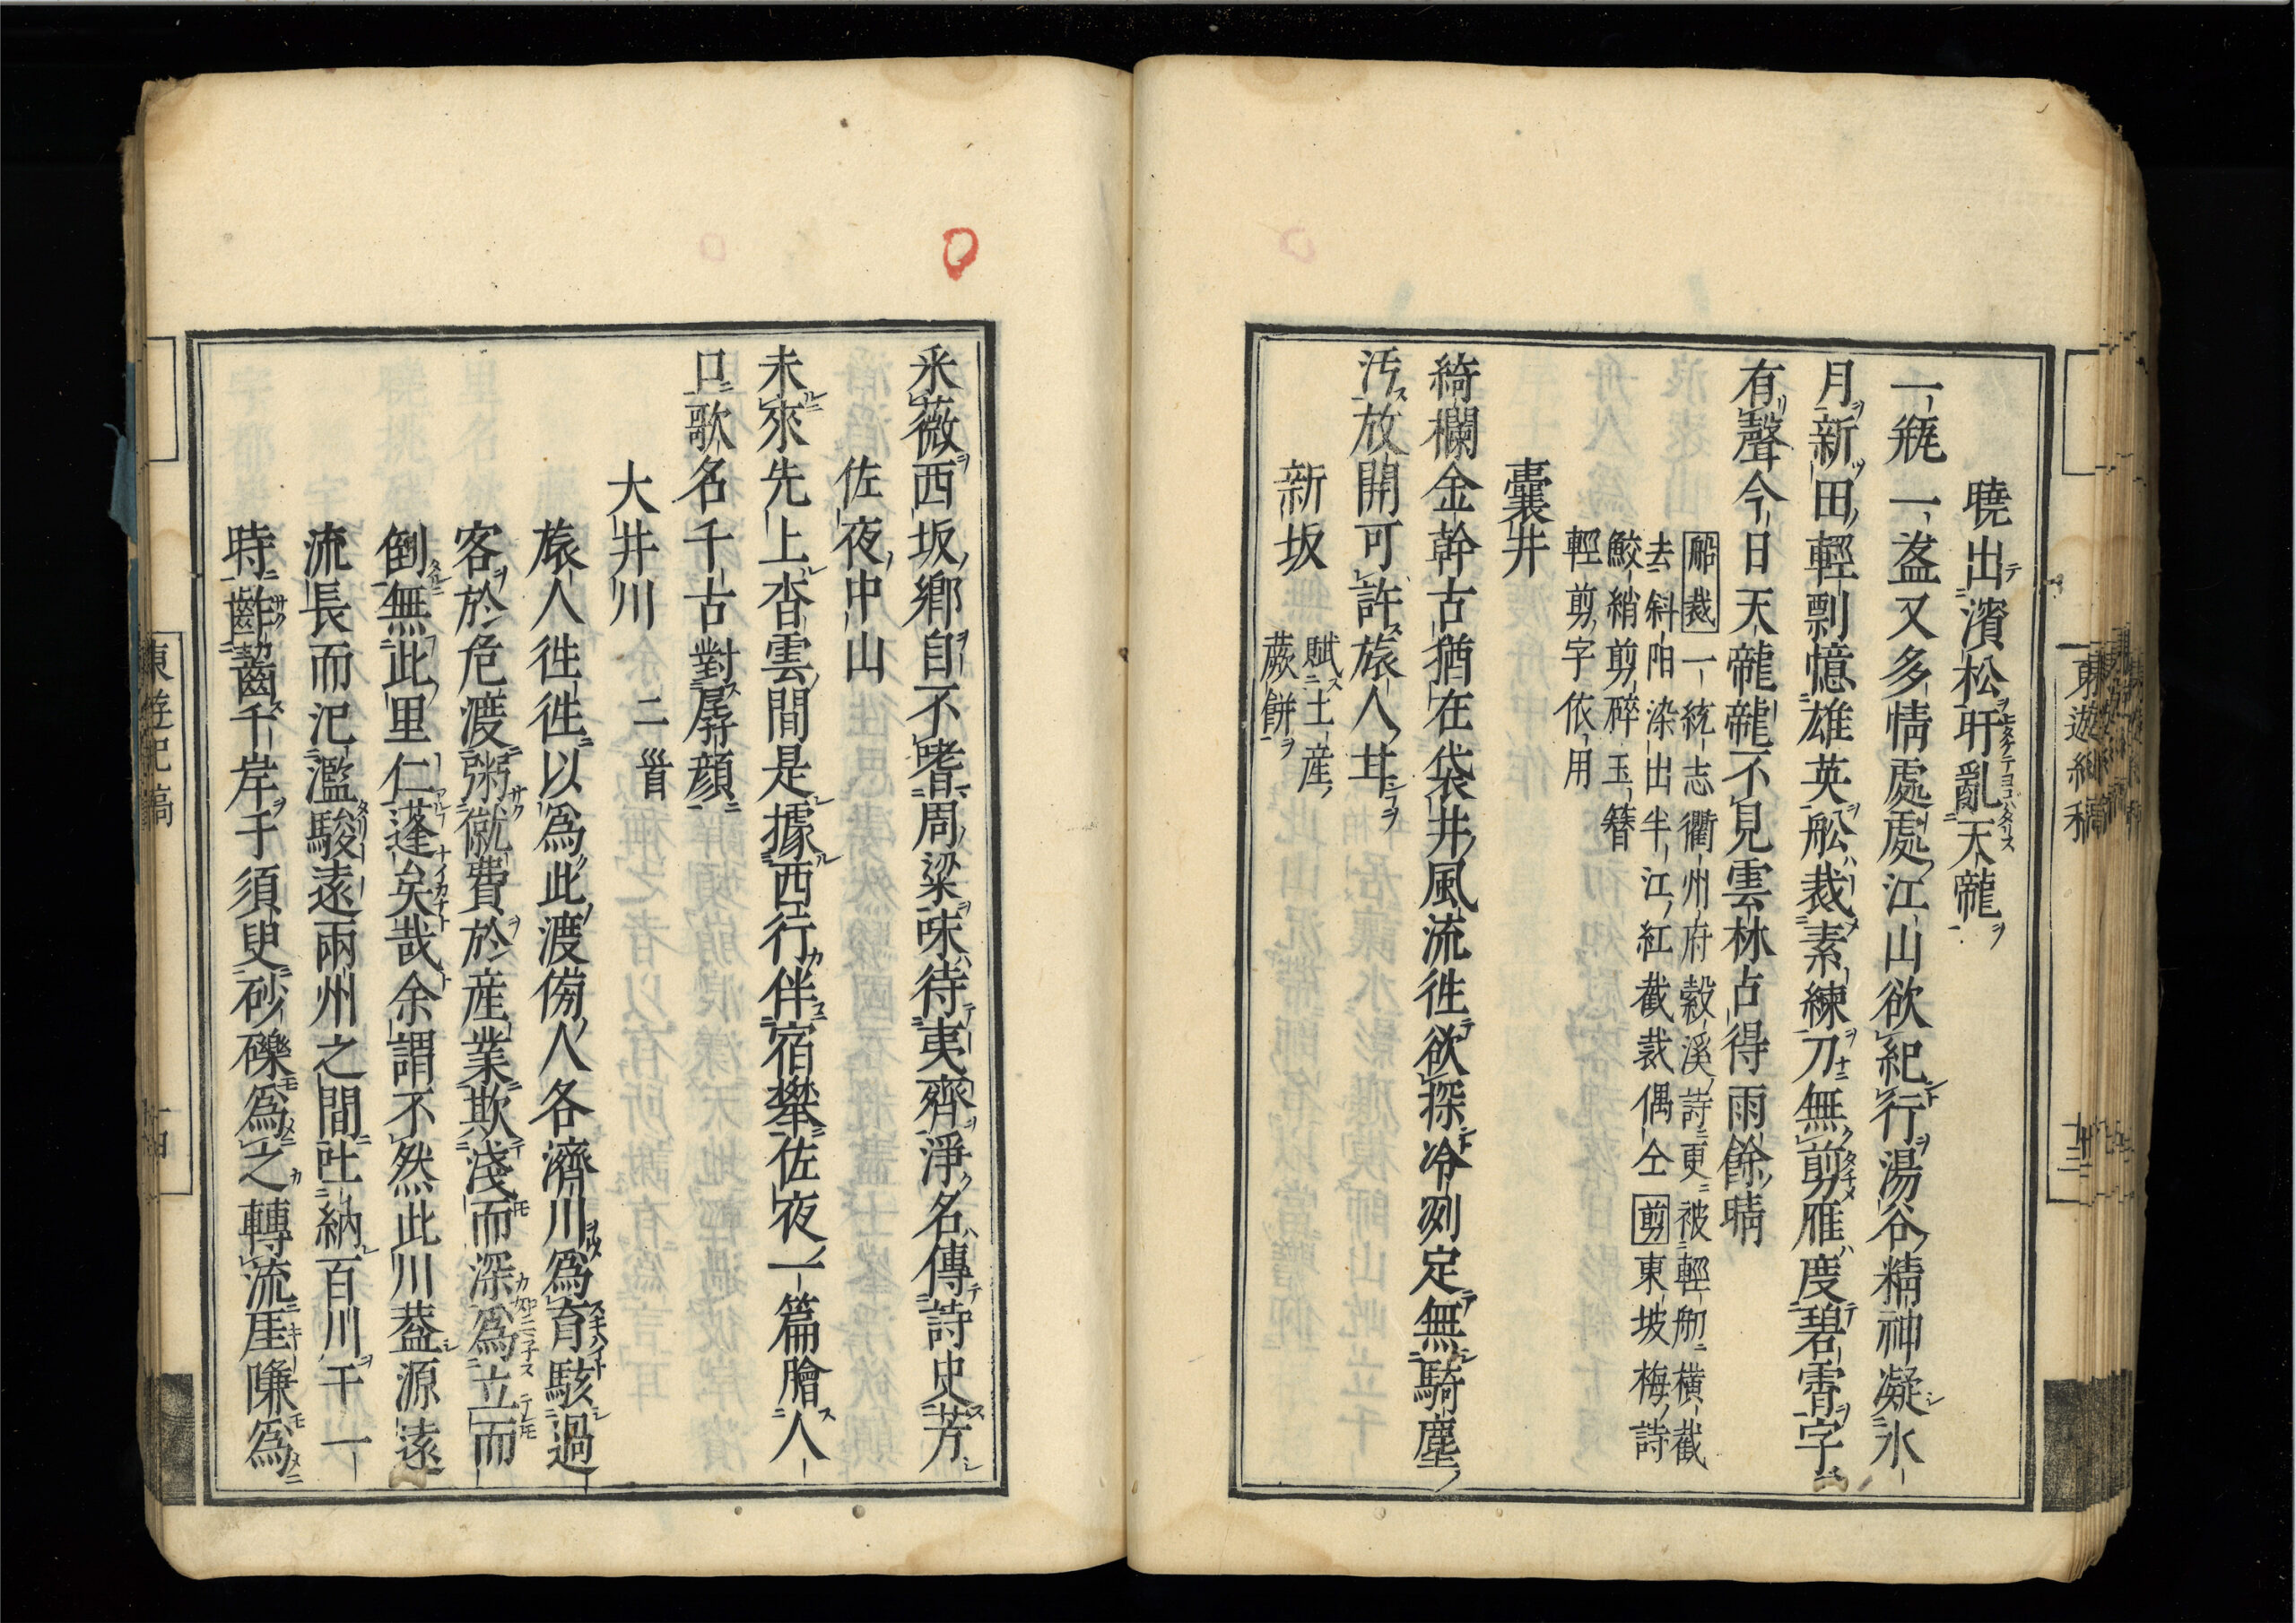 曉出濱松盱亂天龍
一瓶一盃又多情處處江山欲紀行湯谷精神凝氷
月新田輕剽憶雄英舩裁素練刀無剪雁度碧霄字
有聲今日天龍龍不見雲林占得雨餘晴
舩裁一統志衢州府縠溪詩更被輕舠橫截
去斜陽染出半江紅截裁偶仝剪東坡梅詩
鮫綃剪碎玉簪
輕剪字依用
囊井
綺欄金幹古猶在袋井風流徃欲探冷冽定無騎塵
汚放開可許旅人甘
新坂
賦土産
蕨餅
采薇西坂鄉自不嗜周粱味待夷齊淨名傳詩史芳
佐夜中山
未來先上杏雲間是據西行伴宿攀佐夜一篇膾人
口歌名千古對孱顏
大井川 二首
旅人徃徃以爲此渡傍人各濟川爲育駭過
客於危渡粥僦費於産業欺淺而深爲立而
倒無此里仁蓬矣哉余謂不然此川葢源遠
流長而氾濫駿遠兩州之間吐納百川于一
時齰齧千岸于須臾砂礫爲之轉流厓𨻶爲
東遊紀稿
十三
東遊紀稿
十四